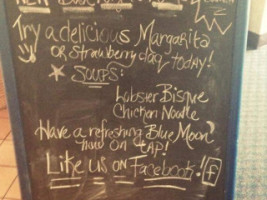 Try a delicious Margarita
or Strawberry daq today!
Soups:
Lobster Bisque
Chicken Noodle
Have a refreshing Blue Moon
now on TAP!
Like us on Facebook! f